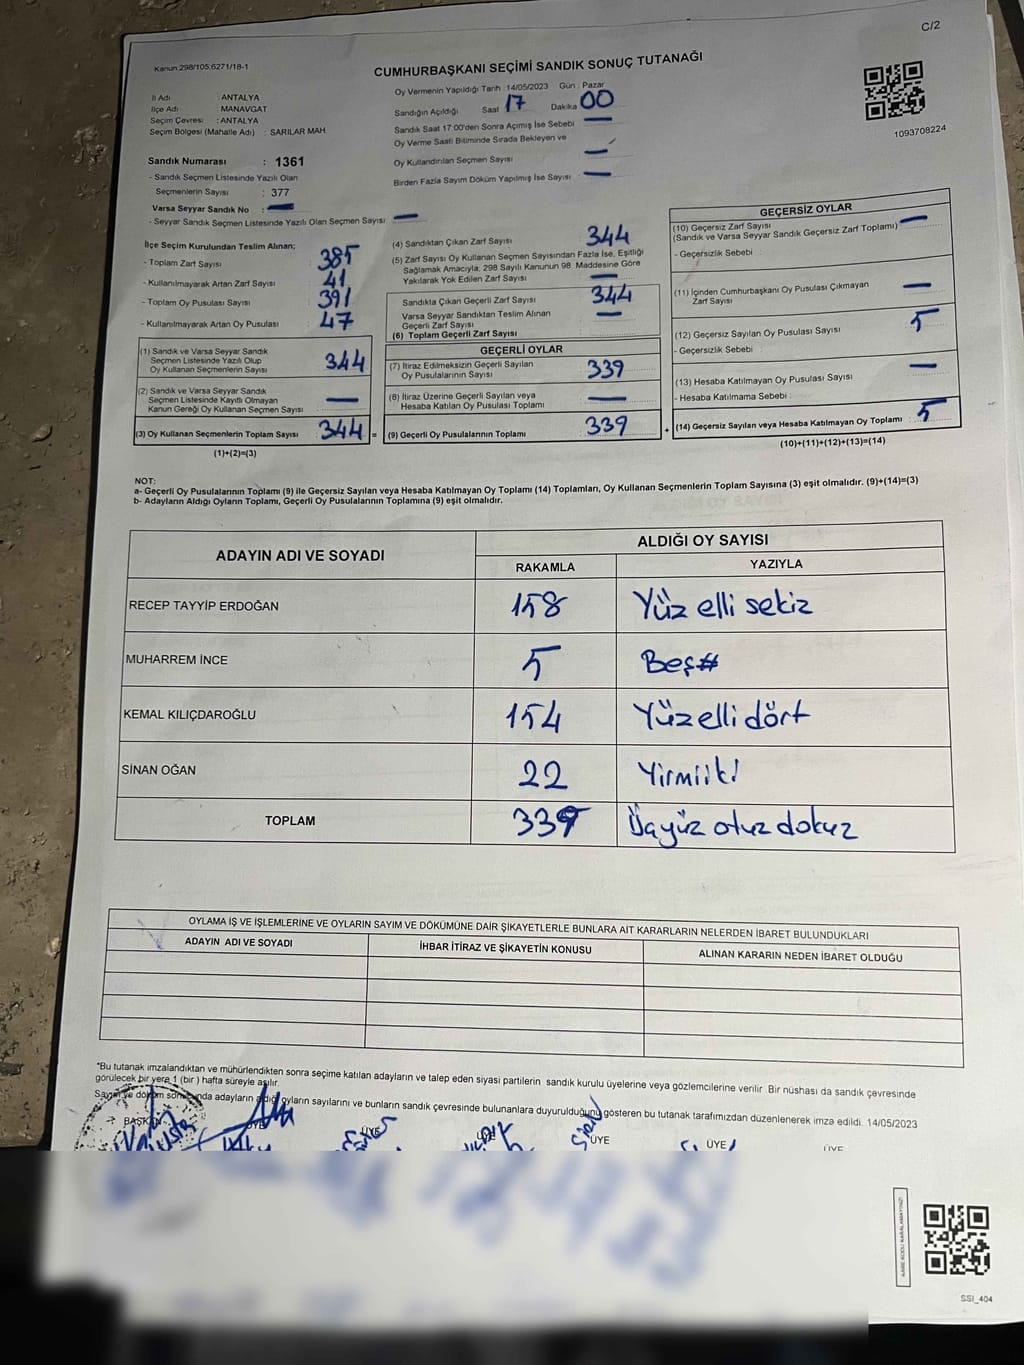 C/2
Kanun:298/105;6271/18-1
CUMHURBAŞKANI SEÇİMİ SANDIK SONUÇ TUTANAĞI
1093708224
İl Adı : ANTALYA
İlçe Adı : MANAVGAT
Seçim Çevresi : ANTALYA
Seçim Bölgesi (Mahalle Adı) : SARILAR MAH
Sandık Numarası : 1361
- Sandık Seçmen Listesinde Yazılı Olan
Seçmenlerin Sayısı : 377
Varsa Seyyar Sandık No : —
- Seyyar Sandık Seçmen Listesinde Yazılı Olan Seçmen Sayısı : —
Oy Vermenin Yapıldığı Tarih : 14/05/2023 Gün : Pazar
Sandığın Açıldığı Saat 17 Dakika 00
Sandık Saat 17:00'den Sonra Açılmış İse Sebebi —
Oy Verme Saati Bitiminde Sırada Bekleyen ve
Oy Kullandırılan Seçmen Sayısı —
Birden Fazla Sayım Döküm Yapılmış İse Sayısı —
İlçe Seçim Kurulundan Teslim Alınan;
- Toplam Zarf Sayısı : 385
- Kullanılmayarak Artan Zarf Sayısı : 41
- Toplam Oy Pusulası Sayısı : 391
- Kullanılmayarak Artan Oy Pusulası : 47
(1) Sandık ve Varsa Seyyar Sandık
Seçmen Listesinde Yazılı Olup
Oy Kullanan Seçmenlerin Sayısı 344
(2) Sandık ve Varsa Seyyar Sandık
Seçmen Listesinde Kayıtlı Olmayan
Kanun Gereği Oy Kullanan Seçmen Sayısı —
(3) Oy Kullanan Seçmenlerin Toplam Sayısı 344 =
(1)+(2)=(3)
(4) Sandıktan Çıkan Zarf Sayısı 344
(5) Zarf Sayısı Oy Kullanan Seçmen Sayısından Fazla İse, Eşitliği
Sağlamak Amacıyla, 298 Sayılı Kanunun 98. Maddesine Göre
Yakılarak Yok Edilen Zarf Sayısı —
Sandıkta Çıkan Geçerli Zarf Sayısı 344
Varsa Seyyar Sandıktan Teslim Alınan
Geçerli Zarf Sayısı —
(6) Toplam Geçerli Zarf Sayısı
GEÇERLİ OYLAR
(7) İtiraz Edilmeksizin Geçerli Sayılan
Oy Pusulalarının Sayısı 339
(8) İtiraz Üzerine Geçerli Sayılan veya
Hesaba Katılan Oy Pusulası Toplamı —
(9) Geçerli Oy Pusulalarının Toplamı 339 +
GEÇERSİZ OYLAR
(10) Geçersiz Zarf Sayısı
(Sandık ve Varsa Seyyar Sandık Geçersiz Zarf Toplamı) —
- Geçersizlik Sebebi
(11) İçinden Cumhurbaşkanı Oy Pusulası Çıkmayan
Zarf Sayısı —
(12) Geçersiz Sayılan Oy Pusulası Sayısı 5
- Geçersizlik Sebebi :
(13) Hesaba Katılmayan Oy Pusulası Sayısı —
- Hesaba Katılmama Sebebi :
(14) Geçersiz Sayılan veya Hesaba Katılmayan Oy Toplamı : 5
(10)+(11)+(12)+(13)=(14)
NOT:
a- Geçerli Oy Pusulalarının Toplamı (9) ile Geçersiz Sayılan veya Hesaba Katılmayan Oy Toplamı (14) Toplamları, Oy Kullanan Seçmenlerin Toplam Sayısına (3) eşit olmalıdır. (9)+(14)=(3)
b- Adayların Aldığı Oyların Toplamı, Geçerli Oy Pusulalarının Toplamına (9) eşit olmalıdır.
ADAYIN ADI VE SOYADI ALDIĞI OY SAYISI
RAKAMLA YAZIYLA
RECEP TAYYİP ERDOĞAN 158 Yüz elli sekiz
MUHARREM İNCE 5 Beş#
KEMAL KILIÇDAROĞLU 154 Yüzelli dört
SİNAN OĞAN 22 Yirmiiki
TOPLAM 339 Üçyüz otuz dokuz
OYLAMA İŞ VE İŞLEMLERİNE VE OYLARIN SAYIM VE DÖKÜMÜNE DAİR ŞİKAYETLERLE BUNLARA AİT KARARLARIN NELERDEN İBARET BULUNDUKLARI
ADAYIN ADI VE SOYADI İHBAR İTİRAZ VE ŞİKAYETİN KONUSU ALINAN KARARIN NEDEN İBARET OLDUĞU
*Bu tutanak imzalandıktan ve mühürlendikten sonra seçime katılan adayların ve talep eden siyasi partilerin sandık kurulu üyelerine veya gözlemcilerine verilir. Bir nüshası da sandık çevresinde
görülecek bir yere 1 (bir) hafta süreyle asılır.
Sayım ve döküm sonucunda adayların aldığı oyların sayılarını ve bunların sandık çevresinde bulunanlara duyurulduğunu gösteren bu tutanak tarafımızdan düzenlenerek imza edildi. 14/05/2023
BAŞKAN ÜYE ÜYE ÜYE ÜYE ÜYE ÜYE
SSI_404